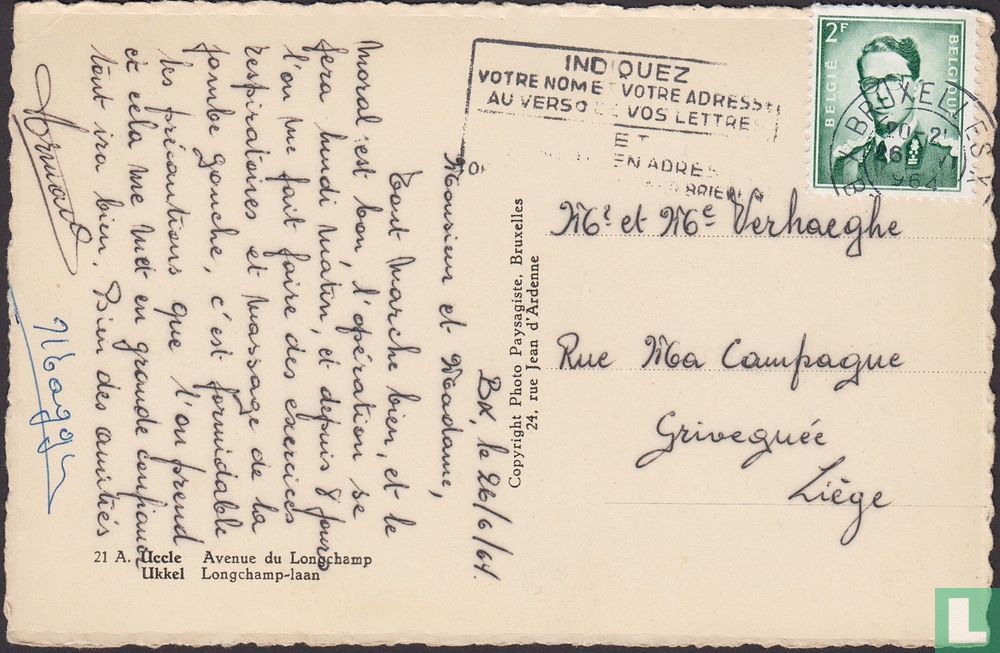 INDIQUEZ
VOTRE NOM ET VOTRE ADRESSE
AU VERSO DE VOS LETTRES
ET
EN ADRES
BRIEVEN
2F
BELGIË
BELGIQUE
BRUXELLES X
20-21
26 VI
1964
Bx, le 26/6/64.
Monsieur et Madame,
Tout marche bien, et le
moral est bon l'opération se
fera lundi matin, et depuis 8 jours
l'on me fait faire des exercices
respiratoires et massage de la
jambe gauche, c'est formidable
les précautions que l'on prend
et cela me met en grande confiance
tout ira bien. Bien des amitiés
Armand
Maggy
Mr et Me Verhaeghe
Rue Ma Campagne
Grivegnée
Liège
Copyright Photo Paysagiste, Bruxelles
24, rue Jean d'Ardenne
21 A. Uccle Avenue du Longchamp
Ukkel Longchamp-laan
L